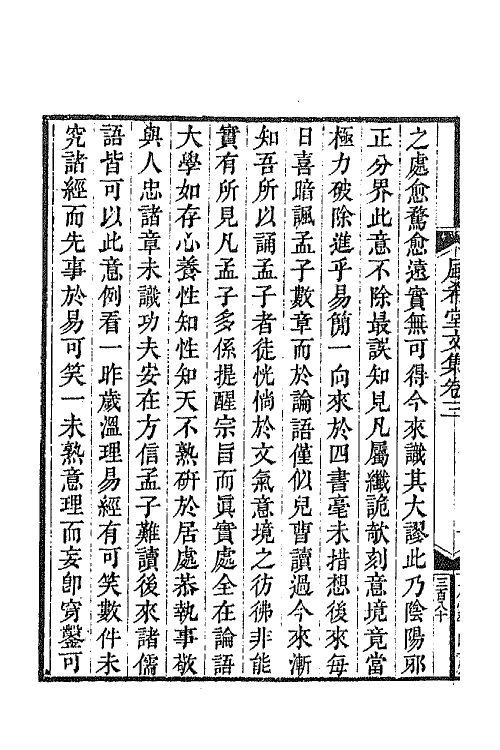 之處愈騖愈遠實無可得今來識其大謬此乃陰陽邪
正分界此意不除最誤知見凡屬纖詭欹刻意境竟當
極力破除進乎易簡一向來於四書毫未措想後來每
日喜暗諷孟子數章而於論語僅似兒曹讀過今來漸
知吾所以誦孟子者徒恍惝於文氣意境之彷彿非能
實有所見凡孟子多係提醒宗旨而眞實處全在論語
大學如存心養性知性知天不熟硏於居處恭執事敬
與人忠諸章未識功夫安在方信孟子難讀後來諸儒
語皆可以此意例看一昨歲溫理易經有可笑數件未
究詁經而先事於易可笑一未熟意理而妄卽穿鑿可
堂文集卷三
三百八十